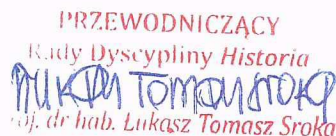 PRZEWODNICZĄCY
Rady Dyscypliny Historia
dr hab. Łukasz Tomasz Sroka